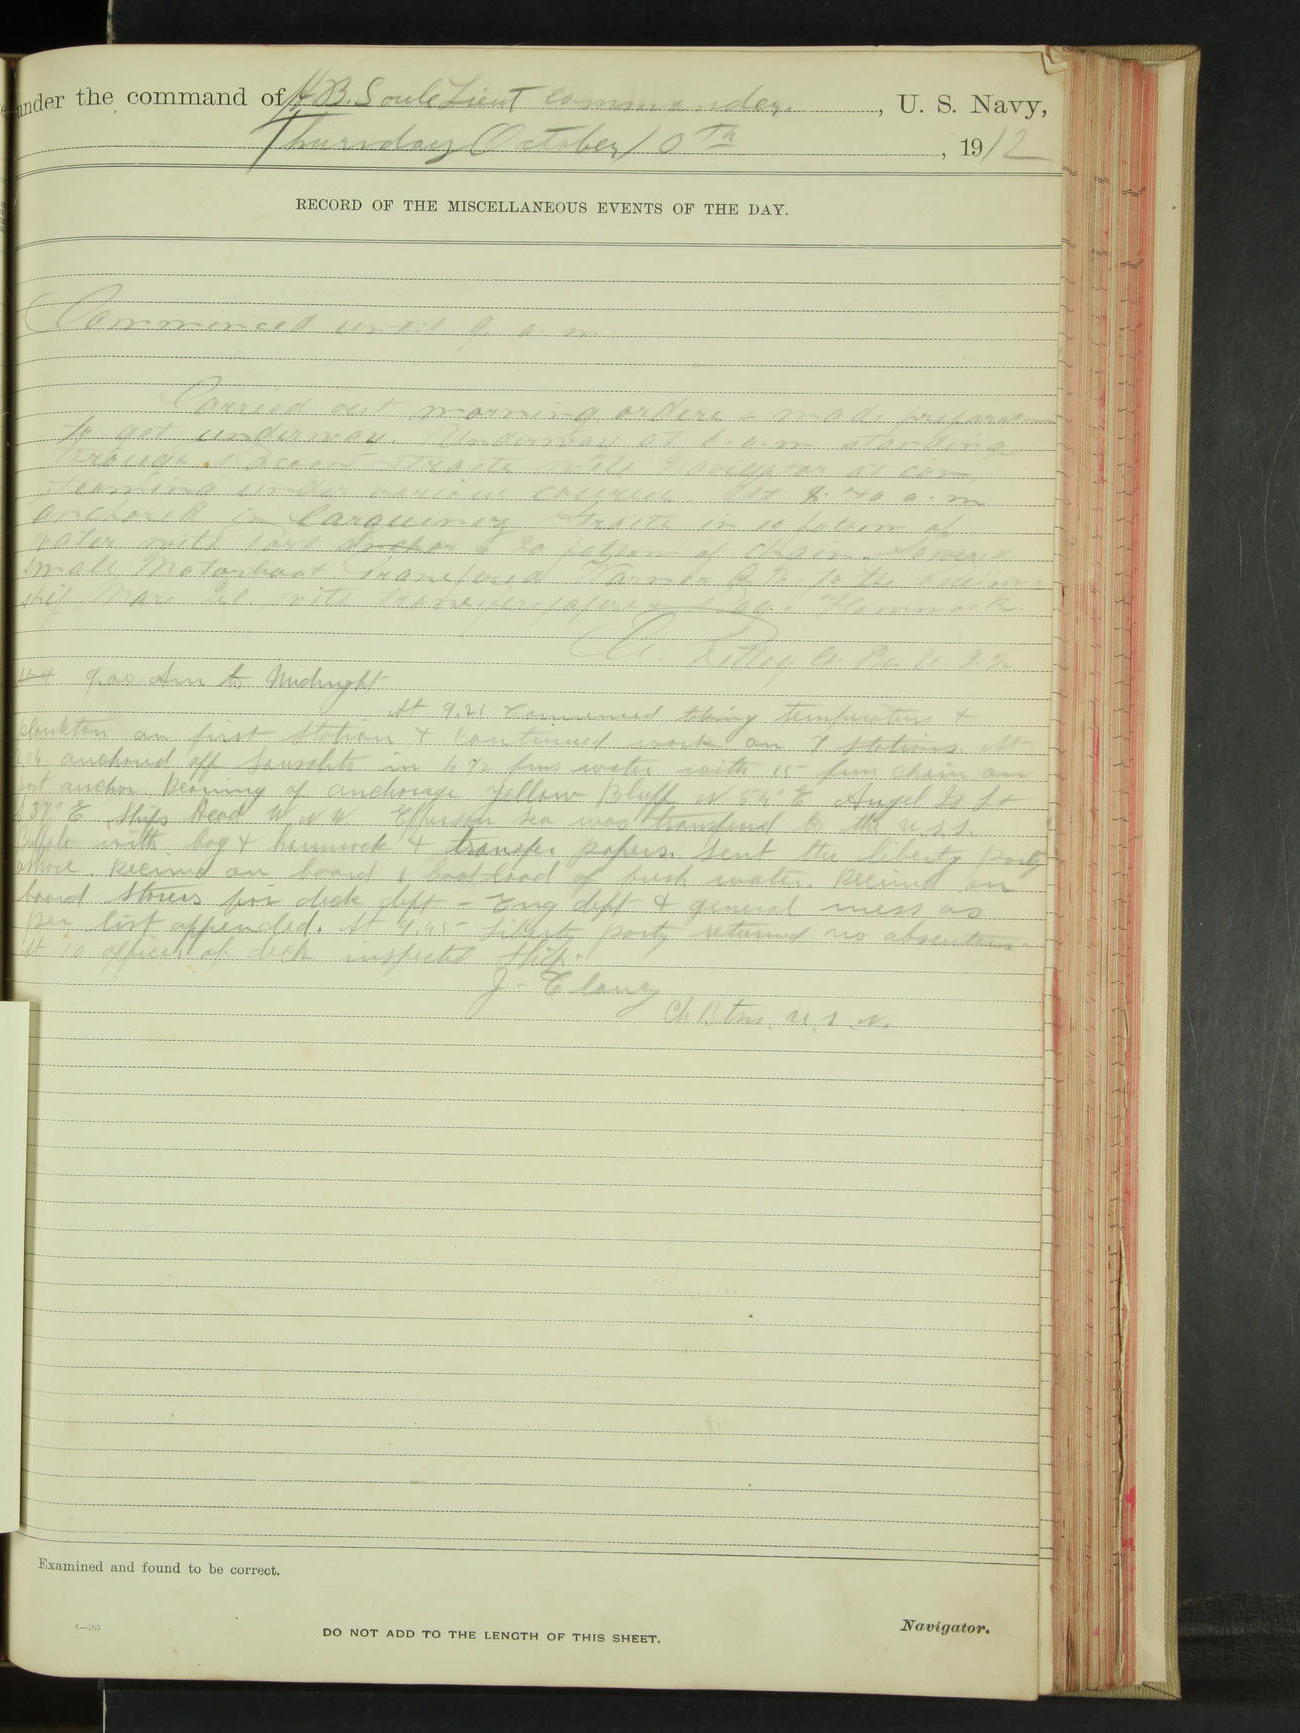 under the command of H. B. Soule Lieut Commander, U. S. Navy,
Thursday October 10th, 1912
RECORD OF THE MISCELLANEOUS EVENTS OF THE DAY.
Commenced until 9 a. m.
Carried out morning orders & made
to get underway. Underway at a. m standing
through straits with Navigator at con,
steaming under various courses. At 8. a. m
anchored in Carquinez Straits in 10 fathom of
water with Port anchor & 20 fathom of chain. Lowered
small Motorboat Transfered to the
ship Mare Isl. with transfer papers & Bag & Hammock
U. S. N.
9.00 Am to Midnight
At 9.21 Commenced taking temperatures &
plankton on first station & continued work on 7 stations. At
anchored off Sausalito in 6 1/2 fms water with 15 fms chain on
port anchor. Bearing of anchorage Yellow Bluff N 54° E Angel Is Lt
37° E Ships Head W N W. sea was transferred to the U.S.S.
Buffalo with bag & hammock & transfer papers. Sent the liberty party
ashore. Received on board 1 boat load of fresh water. Received on
board Stores for deck dept - Eng dept & general mess as
per list appended. At 9.45 Liberty party returned no absentees.
At 10 officer of deck inspected ship.
Ch Btsn. U. S. N.
Examined and found to be correct.
DO NOT ADD TO THE LENGTH OF THIS SHEET.
Navigator.